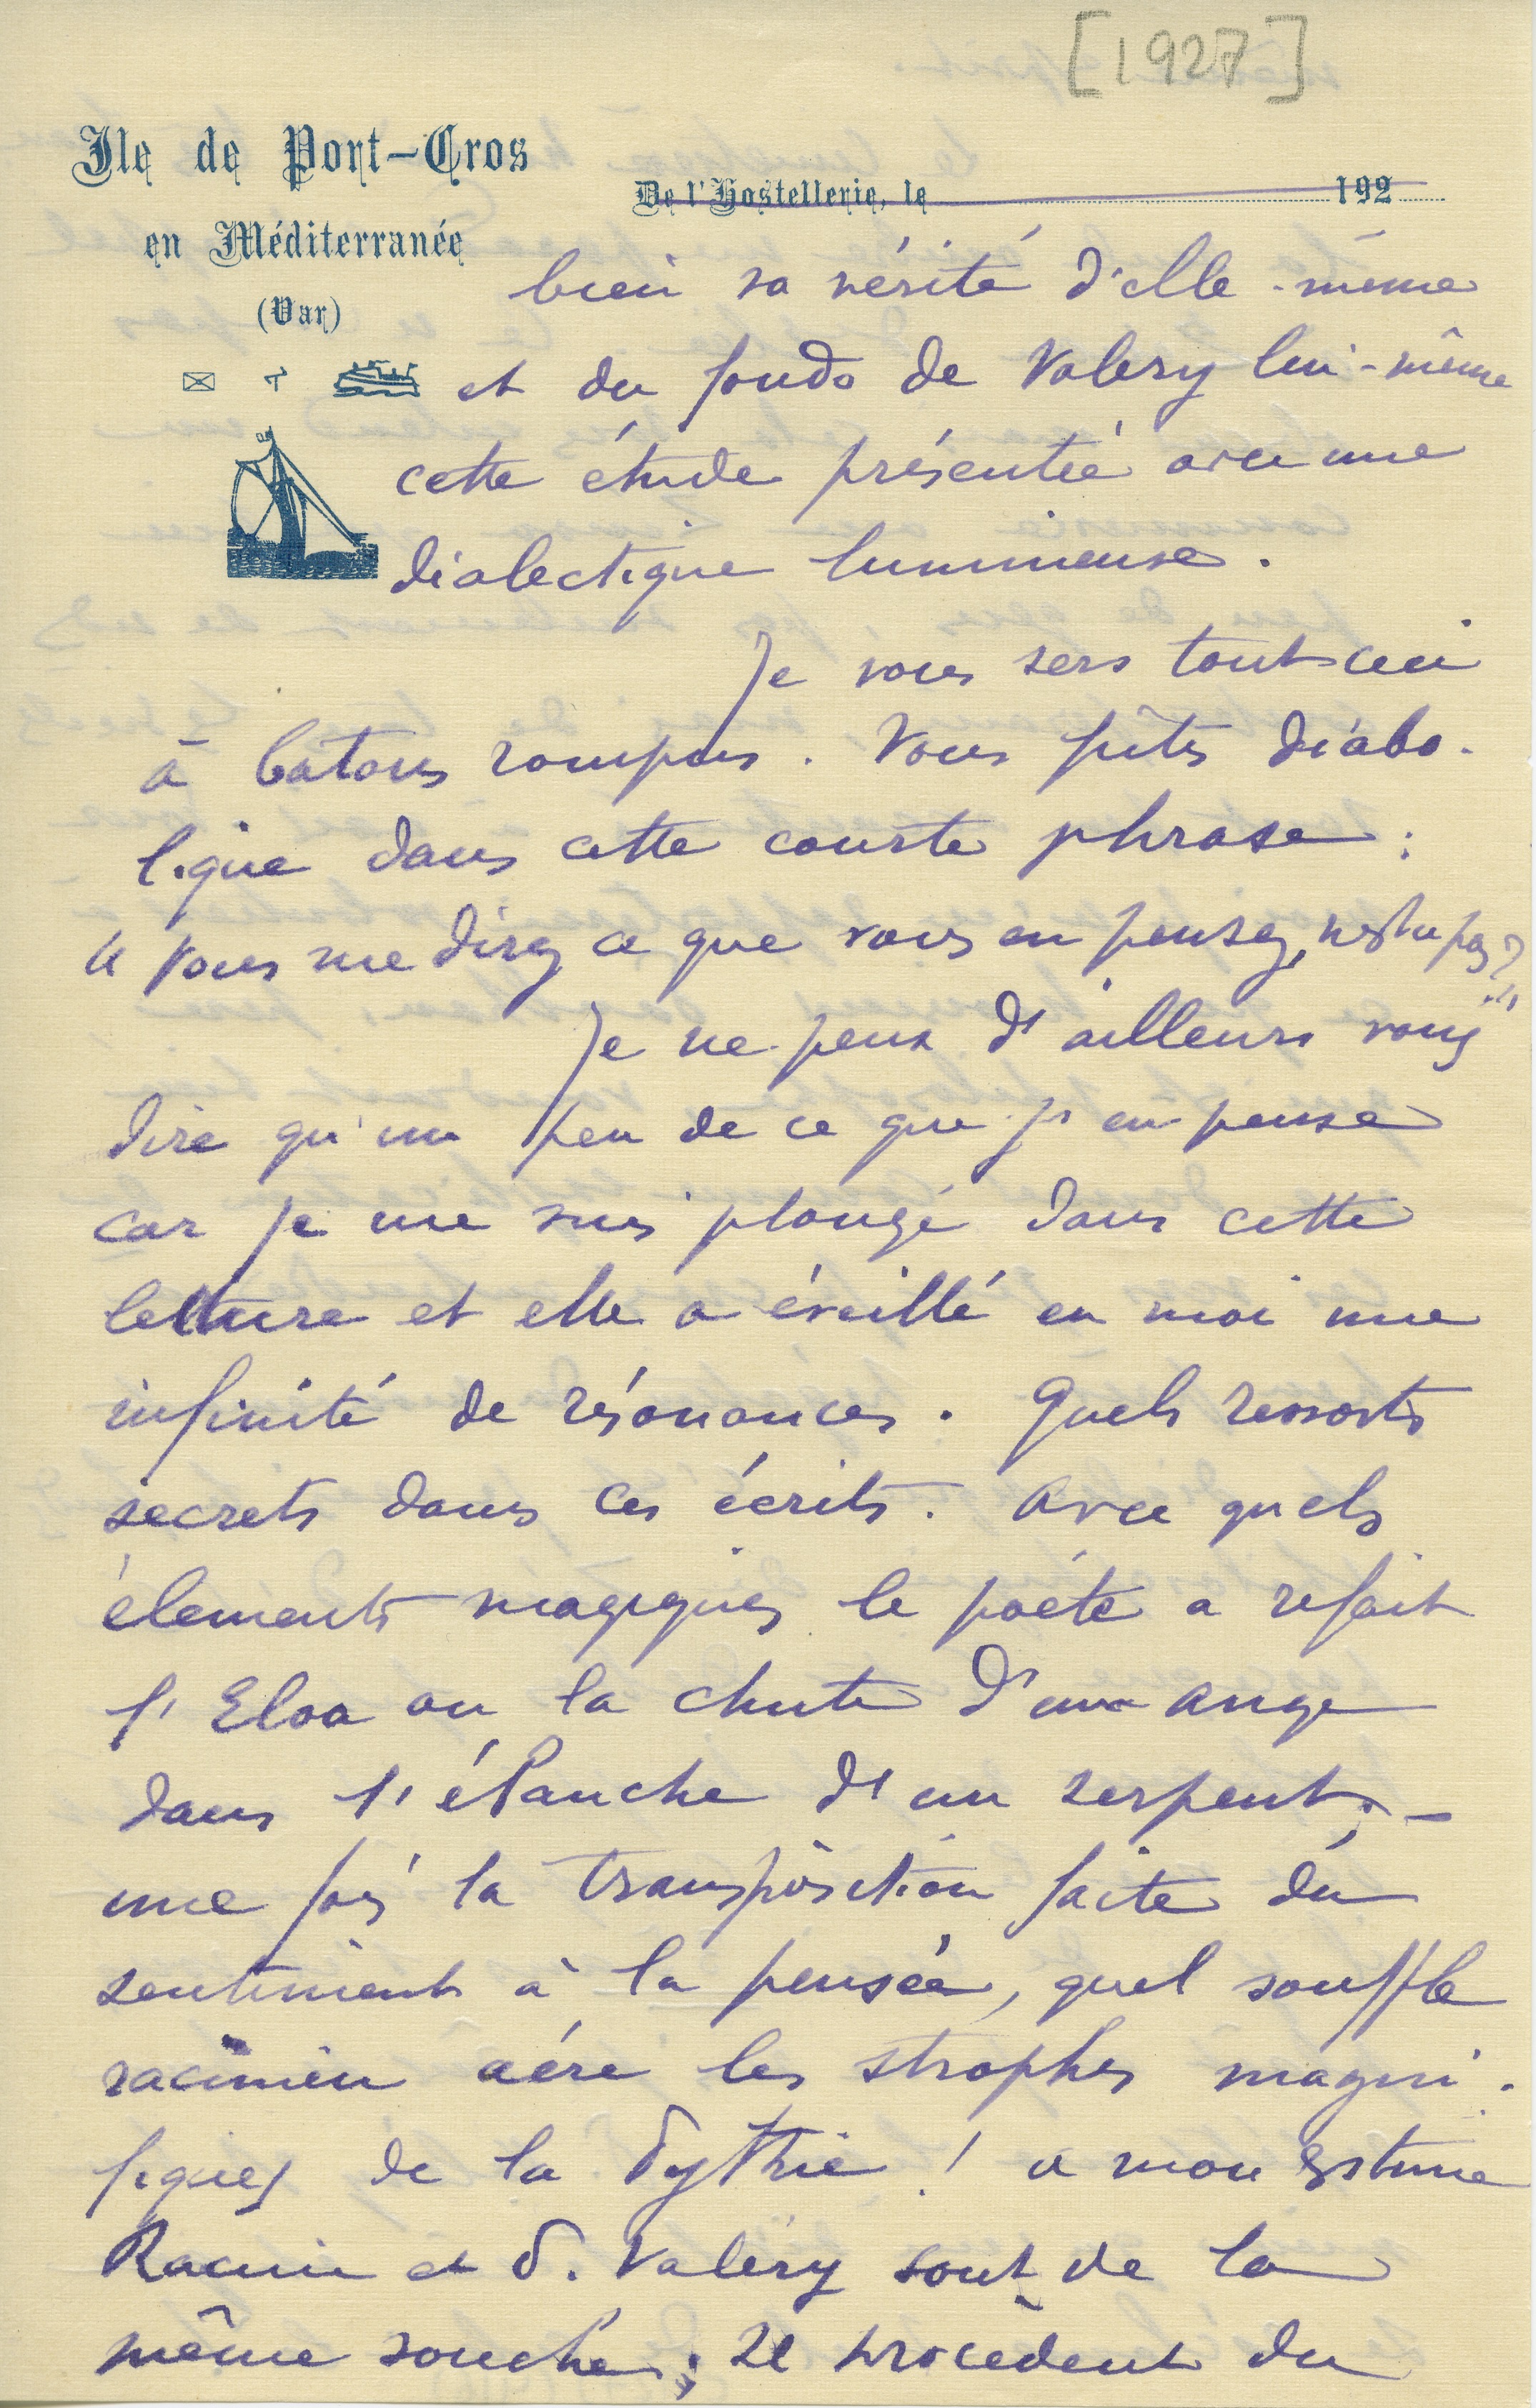 [1927]
Ile de Port-Cros
De l'Hostellerie, le 192
en Méditerranée
(Var)
bien sa vérité d'elle-même
et du fonds de Valery lui-même
cette étude présentée avec une
dialectique lumineuse.
Je vous sers tout ceci
à batons rompus. Vous fûtes diabo-
lique dans cette courte phrase :
"Vous me direz ce que vous en pensez, n'est ce pas ?"
Je ne peux d'ailleurs vous
dire qu'un peu de ce que j'en pense
car je me suis plongé dans cette
lecture et elle a éveillé en moi une
infinité de résonances. Quels ressorts
secrets dans ces écrits. Avec quels
élements magiques le poète a refait
l'Eloa ou la chute d'un ange
dans l'ébauche d'un serpent; -
une fois la transposition faite du
sentiment à la pensée, quel souffle
racinien aére les strophes magni-
fiques de la Pythie ! a mon estime
Racine et P. Valéry sont de la
même souche; Il procèdent du